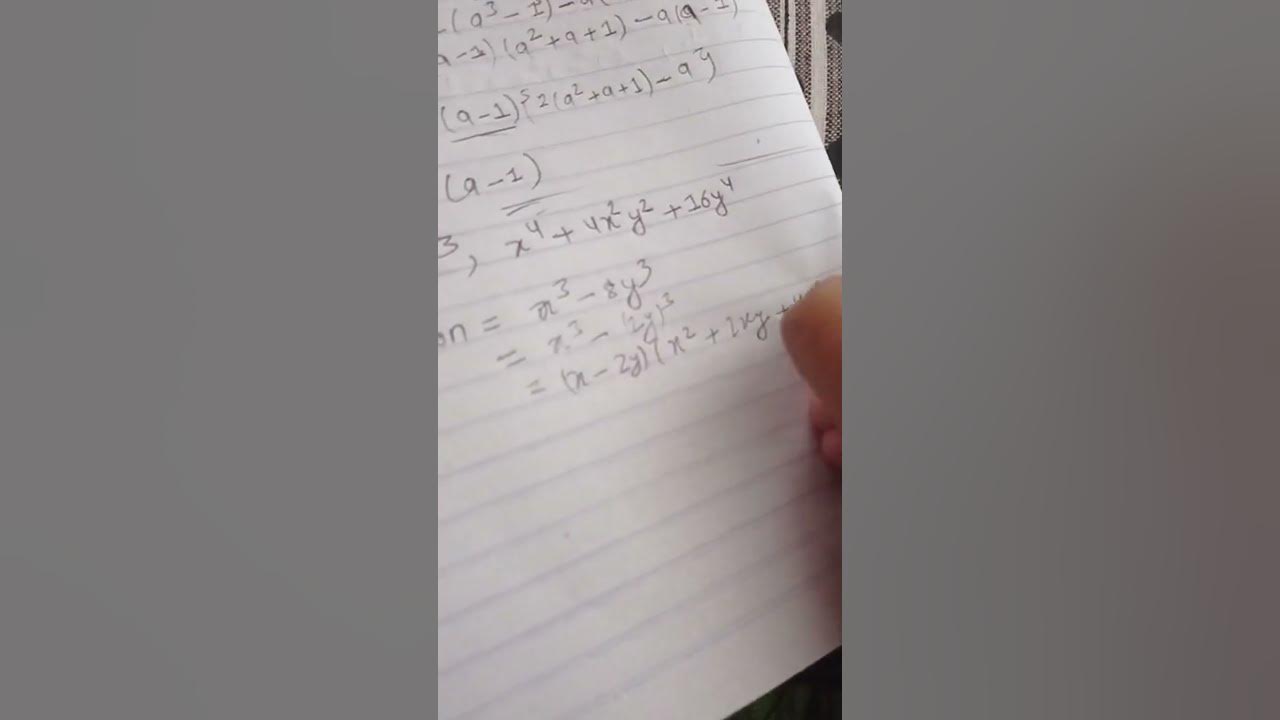 -(a³-1)-a(
a-1)(a²+a+1)-a(a-1)
(a-1){2(a²+a+1)-a}
(a-1)
3, x⁴+4x²y²+16y⁴
on = x³-8y³
= x³-(2y)³
= (x-2y)(x²+2xy+4